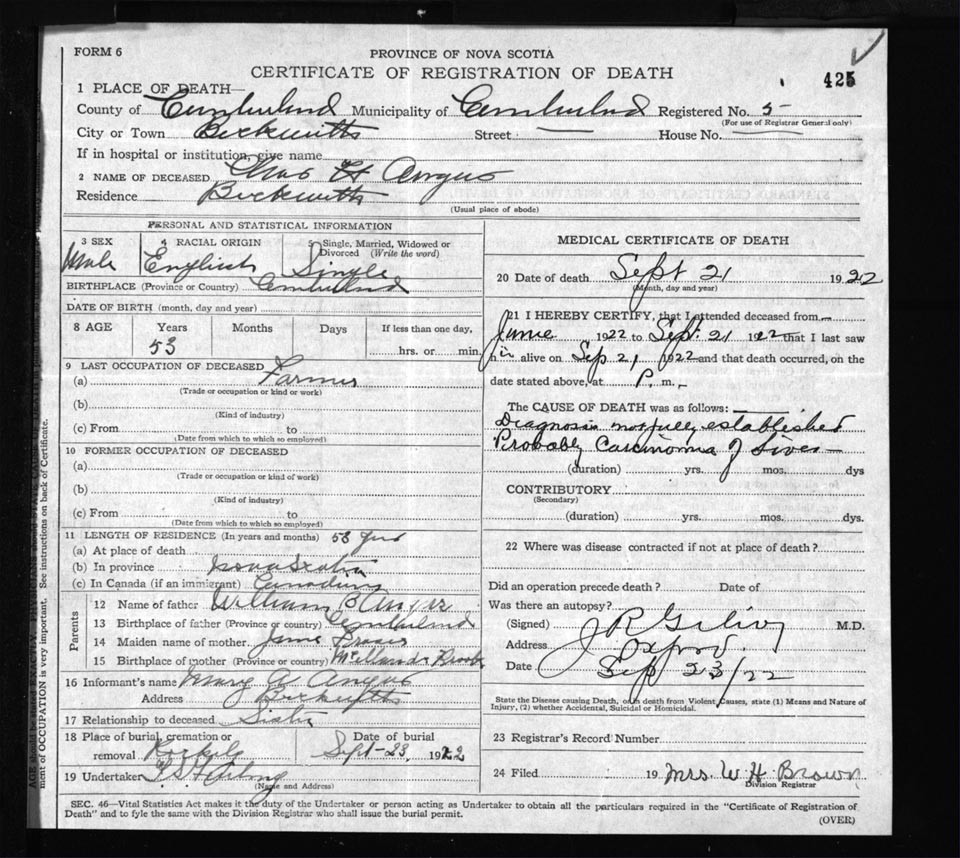 FORM 6
PROVINCE OF NOVA SCOTIA
CERTIFICATE OF REGISTRATION OF DEATH
425
1 PLACE OF DEATH—
County of Cumberland Municipality of Cumberland Registered No. 5
(For use of Registrar General only)
City or Town Beckwiths Street — House No. —
If in hospital or institution, give name
2 NAME OF DECEASED Chas H Angus
Residence Beckwiths
(Usual place of abode)
PERSONAL AND STATISTICAL INFORMATION
3 SEX 4 RACIAL ORIGIN 5 Single, Married, Widowed or Divorced (Write the word)
Male English Single
BIRTHPLACE (Province or Country) Cumberland
DATE OF BIRTH (month, day and year)
8 AGE Years Months Days If less than one day,
53 hrs. or min.
9 LAST OCCUPATION OF DECEASED
(a) Farmer
(Trade or occupation or kind or work)
(b)
(Kind of industry)
(c) From to
(Date from which to which so employed)
10 FORMER OCCUPATION OF DECEASED
(a)
(Trade or occupation or kind of work)
(b)
(Kind of industry)
(c) From to
(Date from which to which so employed)
11 LENGTH OF RESIDENCE (In years and months) 53 yrs
(a) At place of death
(b) In province Nova Scotia
(c) In Canada (if an immigrant) Canadian
Parents
12 Name of father William B Angus
13 Birthplace of father (Province or country) Cumberland
14 Maiden name of mother Jane
15 Birthplace of mother (Province or country)
16 Informant's name Mary A Angus
Address Beckwiths
17 Relationship to deceased Sister
18 Place of burial, cremation or removal Date of burial
Sept-23, 1922
19 Undertaker
(Name and Address)
MEDICAL CERTIFICATE OF DEATH
20 Date of death Sept 21 1922
(Month, day and year)
21 I HEREBY CERTIFY, that I attended deceased from
June 1922 to Sept. 21 1922 that I last saw
him alive on Sep 21 1922 and that death occurred, on the
date stated above, at P. m.
The CAUSE OF DEATH was as follows:
Diagnosis not fully established
Probably Carcinoma of Liver
(duration) yrs. mos. dys
CONTRIBUTORY
(Secondary)
(duration) yrs. mos. dys.
22 Where was disease contracted if not at place of death?
Did an operation precede death? Date of
Was there an autopsy?
(Signed) J R M.D.
Address Oxford
Date Sep 23/22
State the Disease causing Death, or in death from Violent Causes, state (1) Means and Nature of
Injury, (2) whether Accidental, Suicidal or Homicidal.
23 Registrar's Record Number
24 Filed 19 Mrs. W H Brown
Division Registrar
SEC. 46—Vital Statistics Act makes it the duty of the Undertaker or person acting as Undertaker to obtain all the particulars required in the "Certificate of Registration of
Death" and to fyle the same with the Division Registrar who shall issue the burial permit.
(OVER)
ment of OCCUPATION is very important. See instructions on back of Certificate.